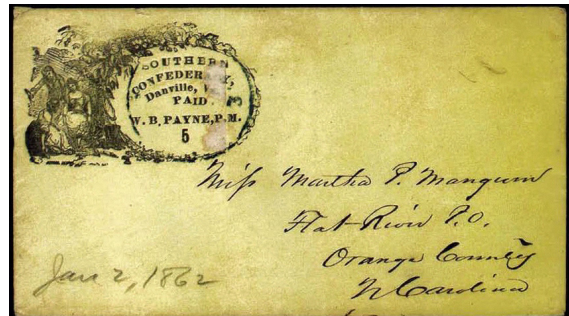 SOUTHERN
Danville,
PAID
W. B. PAYNE, P.M.
5
Miss Martha P. Mangum
Flat River P.O.
Orange County
N Carolina
Jan 2, 1862